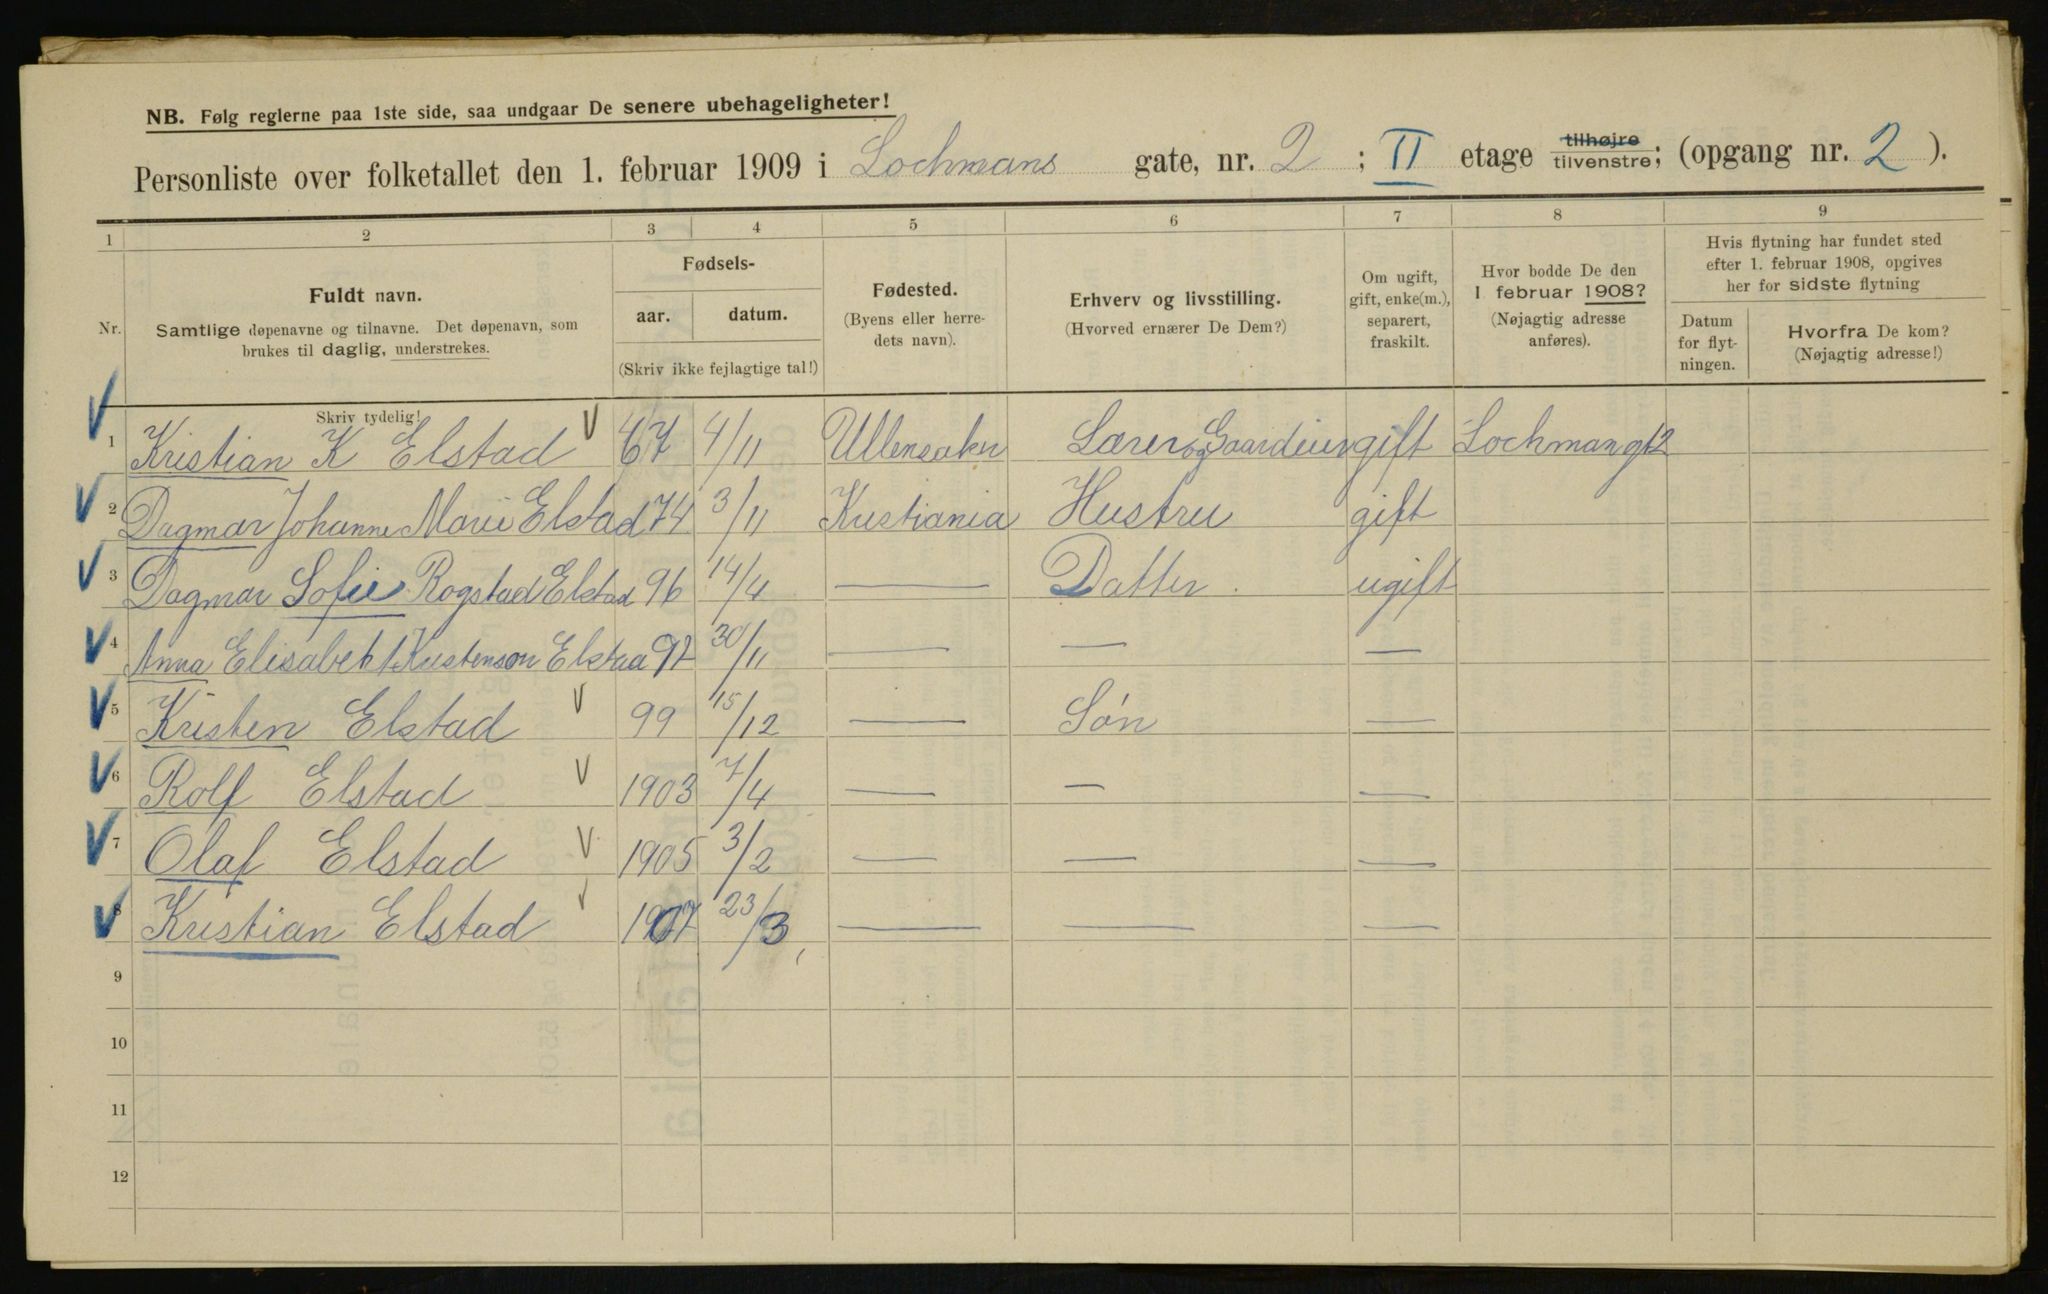 NB. Følg reglerne paa 1ste side, saa undgaar De senere ubehageligheter!
Personliste over folketallet den 1. februar 1909 i Lochmans gate, nr. 2 ; II etage tilhøjre tilvenstre; (opgang nr. 2 ).
1 2 3 4 5 6 7 8 9
Nr.
Fuldt navn.
Samtlige døpenavne og tilnavne. Det døpenavn, som
brukes til daglig, understrekes.
Skriv tydelig!
Fødsels-
aar. datum.
(Skriv ikke fejlagtige tal!)
Fødested.
(Byens eller herre-
dets navn).
Erhverv og livsstilling.
(Hvorved ernærer De Dem?)
Om ugift,
gift, enke(m.),
separert,
fraskilt.
Hvor bodde De den
1 februar 1908?
(Nøjagtig adresse
anføres).
Hvis flytning har fundet sted
efter 1. februar 1908, opgives
her for sidste flytning
Datum
for flyt-
ningen.
Hvorfra De kom?
(Nøjagtig adresse!)
1 Kristian K Elstad 67 4/11 Ullensaker Lærer og Gaardeier gift Lochmangt 2
2 Dagmar Johanne Marie Elstad 74 3/11 Kristiania Hustru gift
3 Dagmar Sofie Rogstad Elstad 96 14/4 — Datter. ugift
4 Anna Elisabeht Kristenson Elstad 97 30/11 — — —
5 Kristen Elstad 99 15/12 — Søn —
6 Rolf Elstad 1903 7/4 — — —
7 Olaf Elstad 1905 3/2 — — —
8 Kristian Elstad 1907 23/3 — — —
9
10
11
12